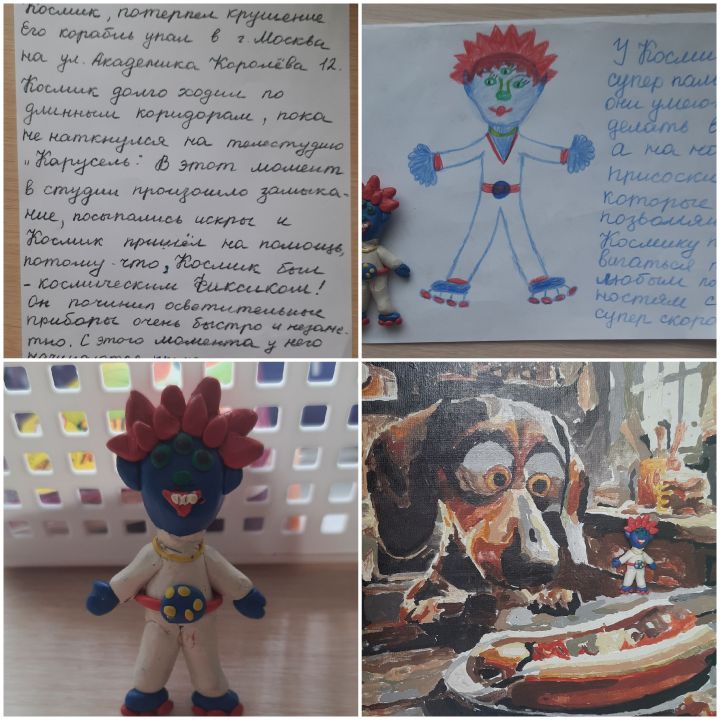 Космик, потерпел крушение
Его корабль упал в г. Москва
на ул. Академика Королёва 12.
Космик долго ходил по
длинным коридорам, пока
не наткнулся на телестудию
„Карусель". В этот момент
в студии произошло замыка-
ние, посыпались искры и
Космик пришёл на помощь,
потому-что, Космик был
- космическим фиксиком!
Он починил осветительные
приборы очень быстро и незаме-
тно. С этого момента у него
У Косми
супер пал
они умею
делать в
а на но
присоски
которые
позволяю
Космику п
вигаться п
любым по
ностям с
супер скоро